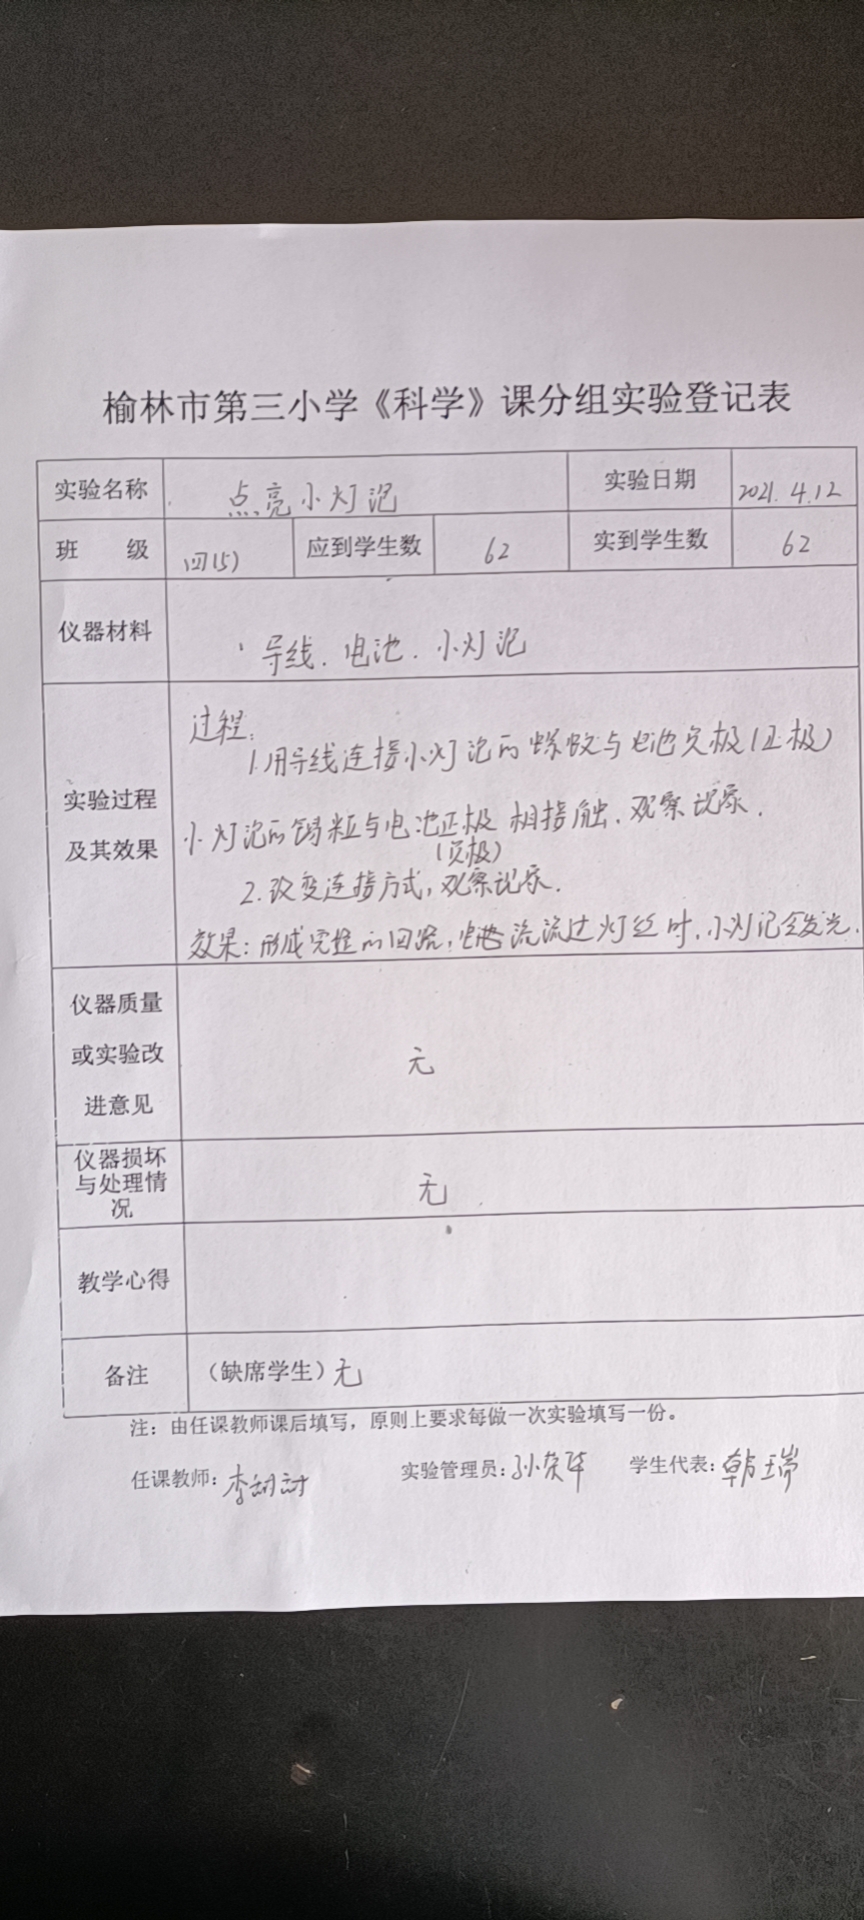 榆林市第三小学《科学》课分组实验登记表
实验名称 点亮小灯泡 实验日期 2021.4.12
班 级 四(5) 应到学生数 62 实到学生数 62
仪器材料 导线.电池.小灯泡
实验过程及其效果
过程:
1.用导线连接小灯泡的螺纹与电池负极(正极)
小灯泡的锡粒与电池正极相接触.观察记录.
(负极)
2.改变连接方式,观察记录.
效果:形成完整的回路,电流流过灯丝时,小灯泡会发光.
仪器质量
或实验改
进意见
无
仪器损坏
与处理情
况
无
教学心得
备注 (缺席学生)无
注:由任课教师课后填写,原则上要求每做一次实验填写一份。
任课教师: 实验管理员: 学生代表:韩瑞